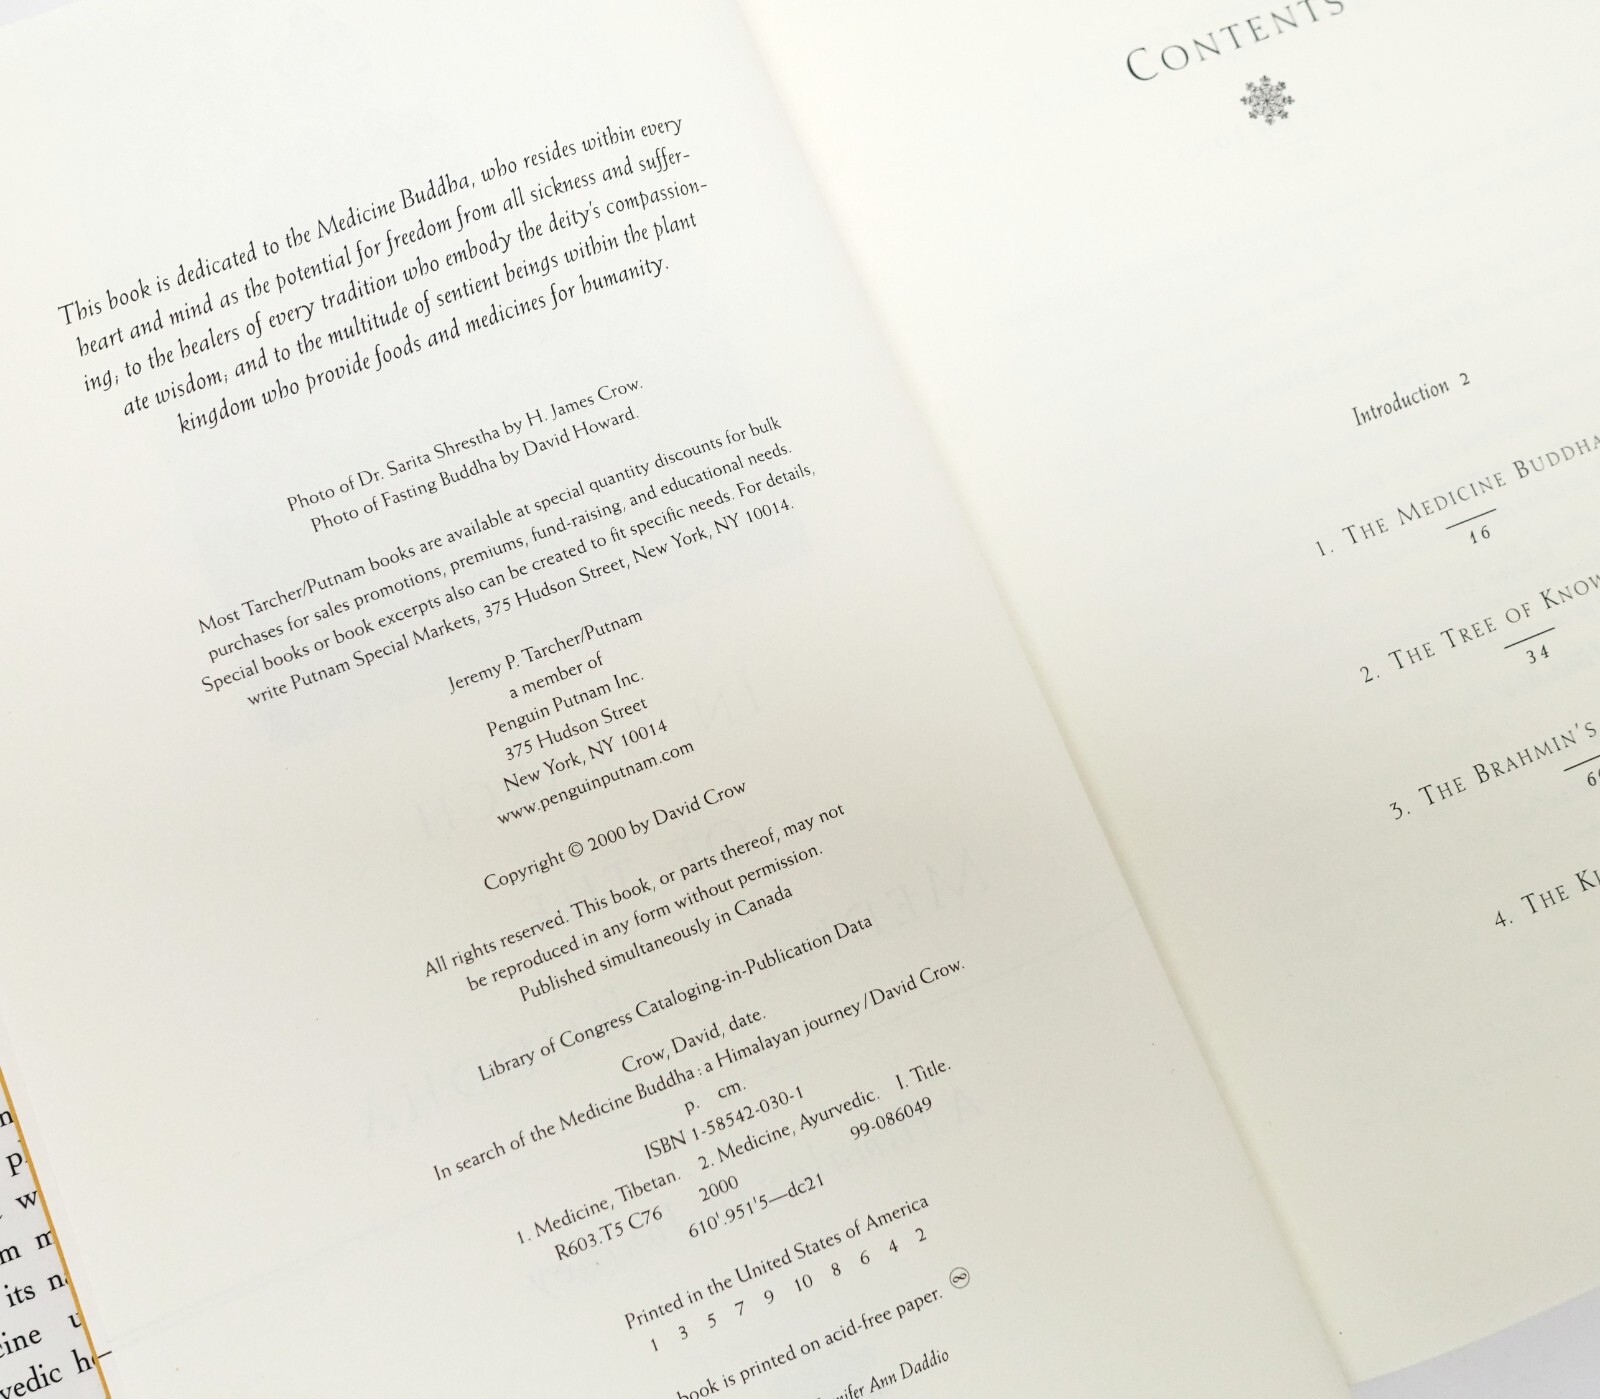 This book is dedicated to the Medicine Buddha, who resides within every
heart and mind as the potential for freedom from all sickness and suffer-
ing; to the healers of every tradition who embody the deity's compassion-
ate wisdom; and to the multitude of sentient beings within the plant
kingdom who provide foods and medicines for humanity.
Photo of Dr. Sarita Shrestha by H. James Crow.
Photo of Fasting Buddha by David Howard.
Most Tarcher/Putnam books are available at special quantity discounts for bulk
purchases for sales promotions, premiums, fund-raising, and educational needs.
Special books or book excerpts also can be created to fit specific needs. For details,
write Putnam Special Markets, 375 Hudson Street, New York, NY 10014.
Jeremy P. Tarcher/Putnam
a member of
Penguin Putnam Inc.
375 Hudson Street
New York, NY 10014
www.penguinputnam.com
Copyright © 2000 by David Crow
All rights reserved. This book, or parts thereof, may not
be reproduced in any form without permission.
Published simultaneously in Canada
Library of Congress Cataloging-in-Publication Data
Crow, David, date.
In search of the Medicine Buddha : a Himalayan journey / David Crow.
p. cm.
ISBN 1-58542-030-1
1. Medicine, Tibetan. 2. Medicine, Ayurvedic. I. Title.
R603.T5 C76 2000 99-086049
610'.951'5—dc21
Printed in the United States of America
1 3 5 7 9 10 8 6 4 2
book is printed on acid-free paper. ∞
Ann Daddio
CONTENTS
Introduction 2
1. THE MEDICINE BUDDHA
16
2. THE TREE OF KNOW
34
3. THE BRAHMIN'S
4. THE KI
its